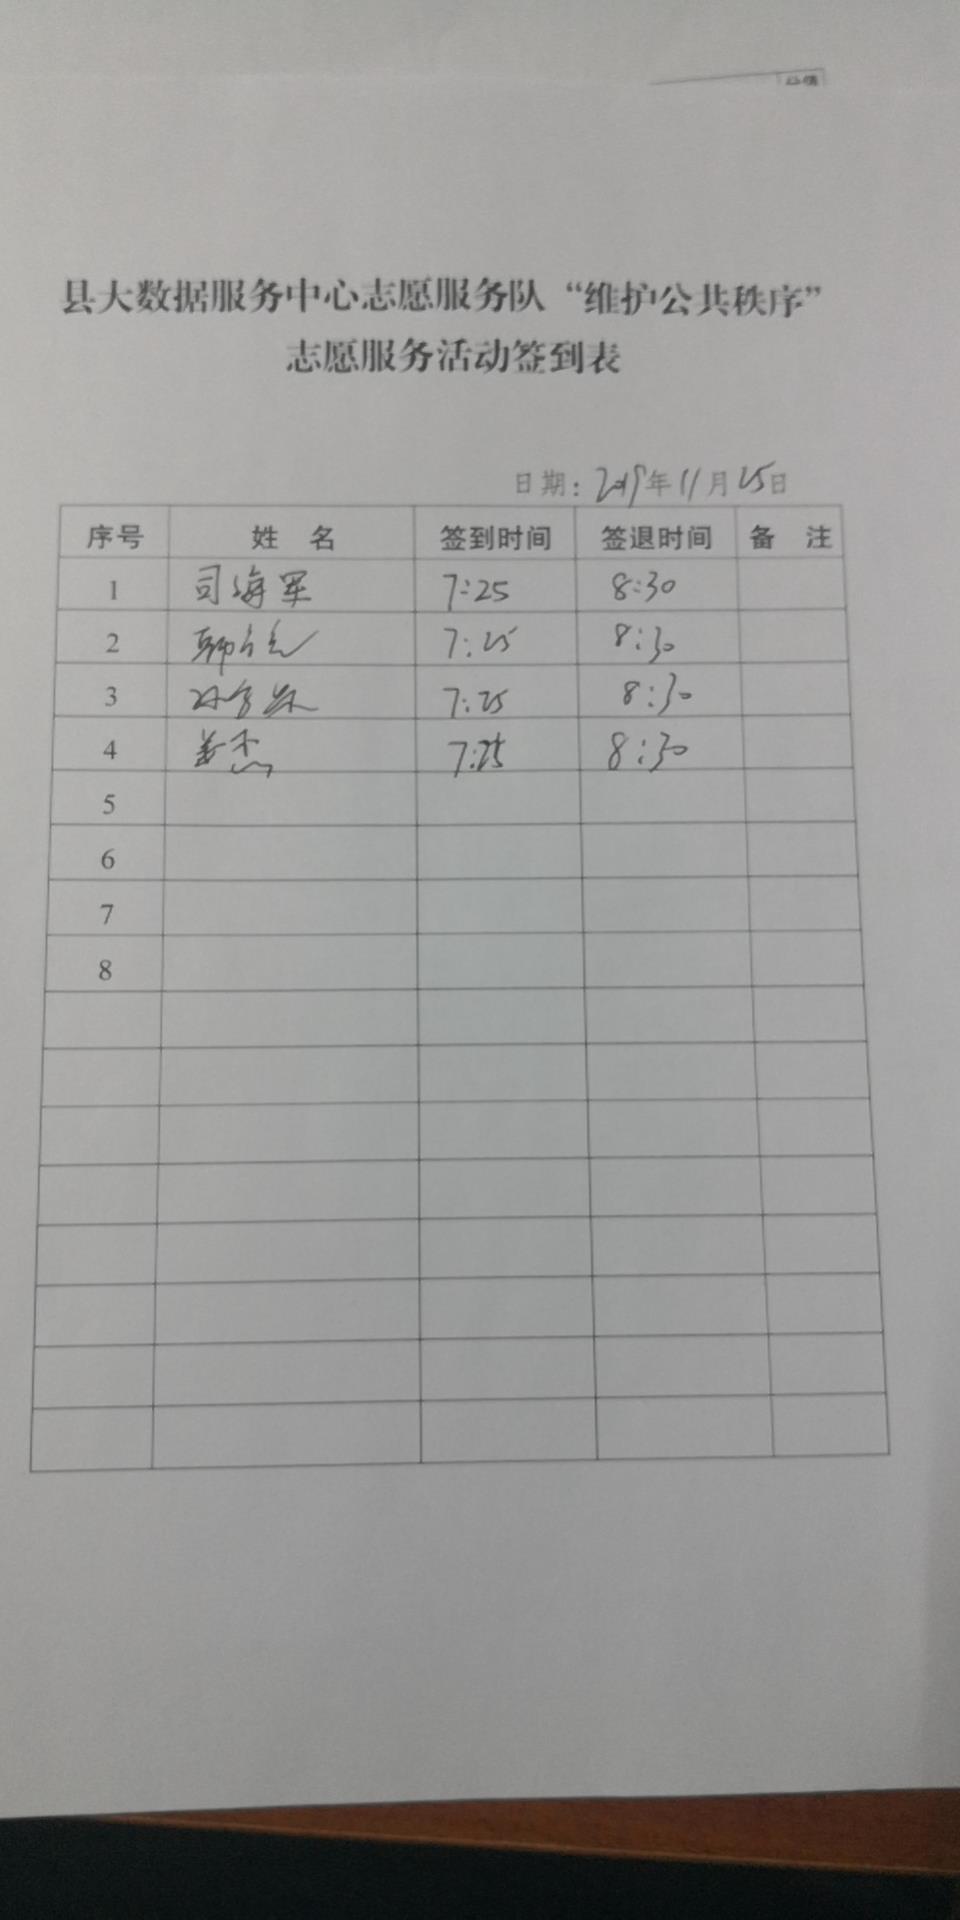 县大数据服务中心志愿服务队“维护公共秩序”
志愿服务活动签到表
日期：2019年11月25日
序号 姓 名 签到时间 签退时间 备 注
1 司海军 7:25 8:30
2 7:25 8:30
3 7:25 8:30
4 姜杰 7:25 8:30
5
6
7
8